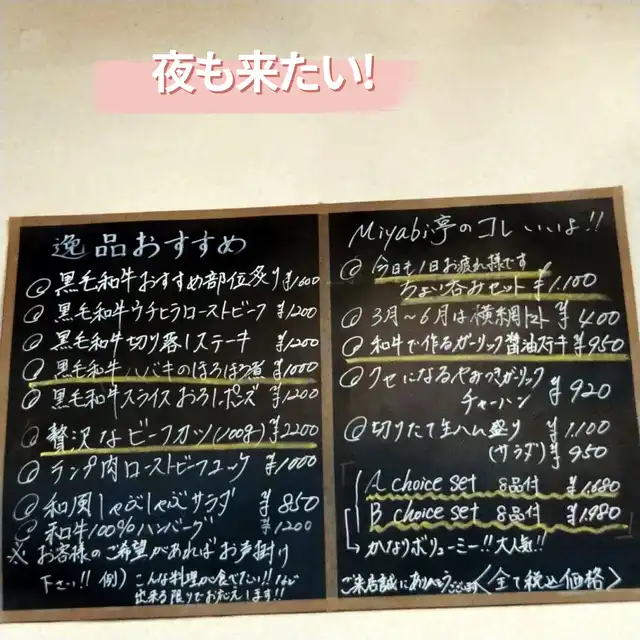 夜も来たい!
逸品おすすめ
黒毛和牛おすすめ部位炙り ¥1600
黒毛和牛ウチヒラローストビーフ ¥1200
黒毛和牛切り落しステーキ ¥1200
黒毛和牛ハバキのほろほろ煮 ¥1000
黒毛和牛スライスおろしポンズ ¥1200
贅沢なビーフカツ(100g) ¥2200
ランプ肉ローストビーフユッケ ¥1000
和風しゃぶしゃぶサラダ ¥850
和牛100%ハンバーグ ¥1200
※お客様のご希望があればお声掛け
下さい!! 例) こんな料理が食べたい!! など
出来る限りでお応えします!!
Miyabi亭のコレいいよ!!
今日も1日お疲れ様です
ちょい呑みセット ¥1.100
3月~6月は横綱トマト ¥400
和牛で作るガーリック醤油ステーキ ¥950
クセになるやみつきガーリック
チャーハン ¥920
切りたて生ハム盛り ¥1.100
(サラダ) ¥950
A choice set 8品付 ¥1.680
B choice set 8品付 ¥1.980
かなりボリューミー!! 大人気!!
ご来店誠にありがとうございます <全て税込価格>